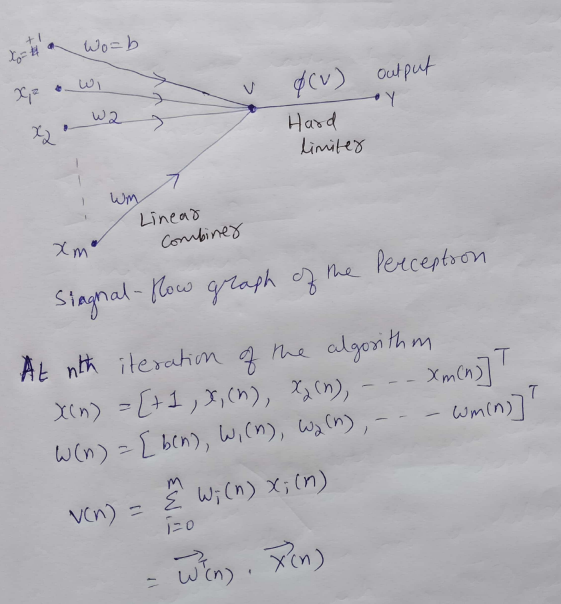 +1
x₀=# w₀=b
x₁= w₁ V φ(V) output
Y
x₂ w2 Hard
limiter
wm Linear
xm Combiner
Siagnal-flow graph of the Perceptron
At nth iteration of the algorithm
x(n) = [+1, x₁(n), x₂(n), - - - - xm(n)]ᵀ
w(n) = [b(n), w₁(n), w₂(n), - - - wm(n)]ᵀ
v(n) = Σᵢ₌₀ᵐ wᵢ(n) xᵢ(n)
= w⃗ᵀ(n) . x⃗(n)